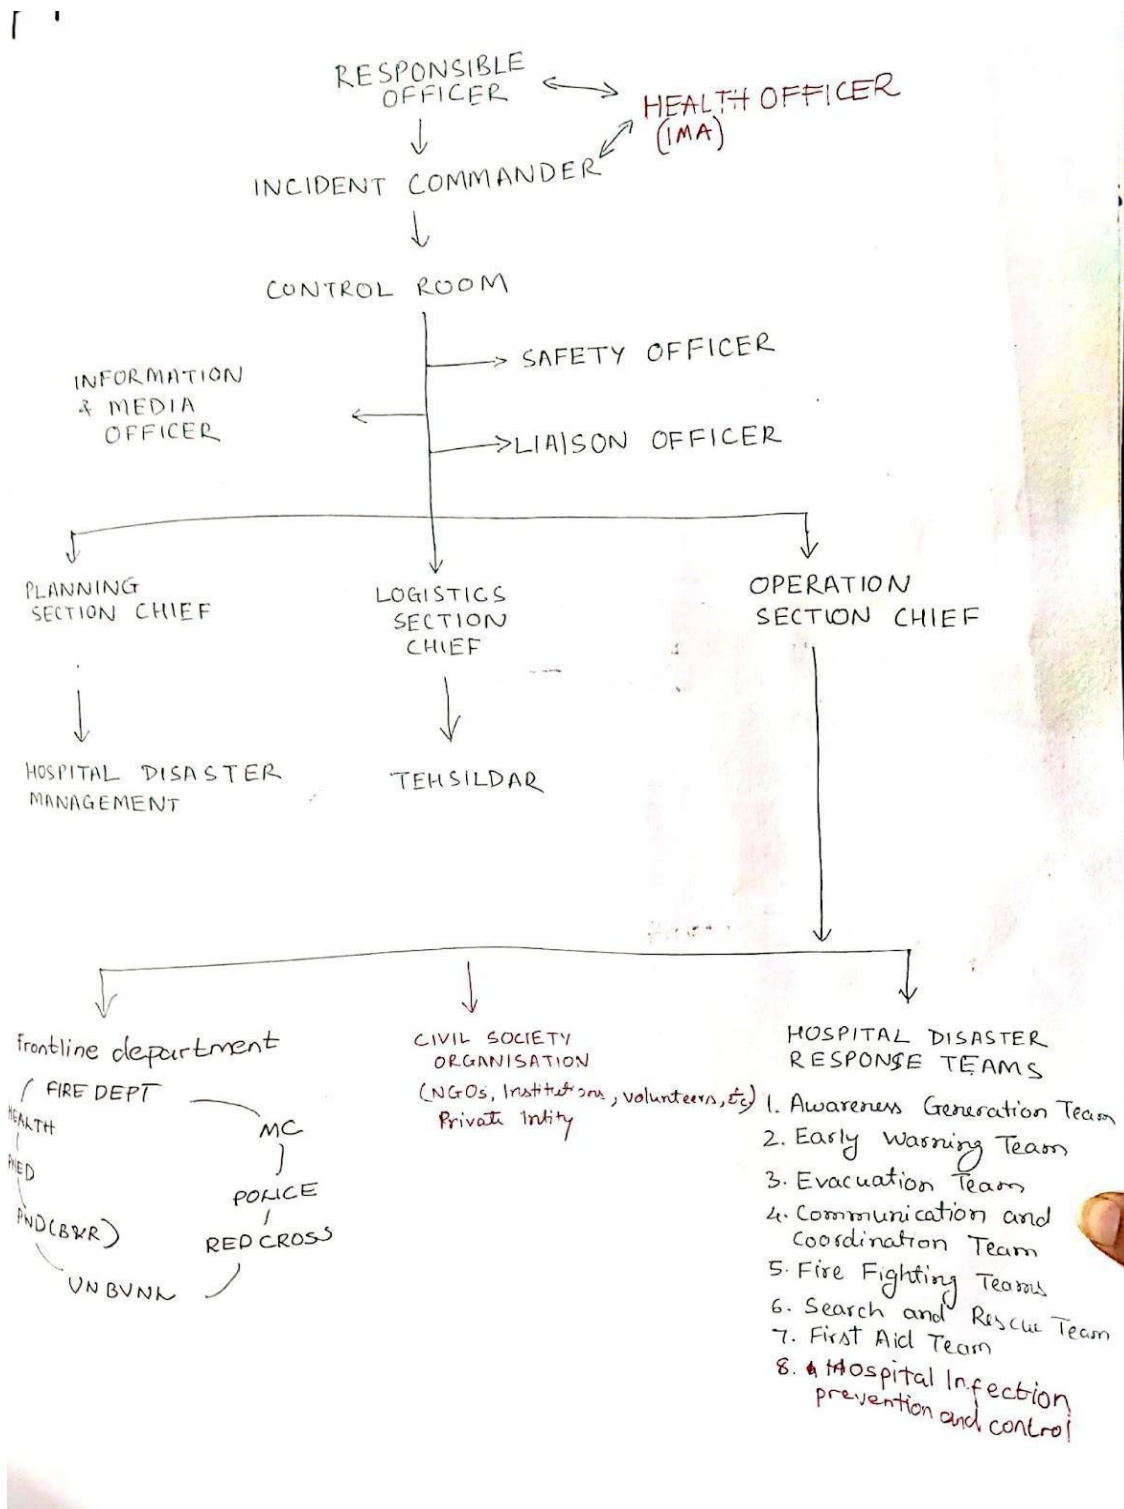 RESPONSIBLE
OFFICER
HEALTH OFFICER
(IMA)
INCIDENT COMMANDER
CONTROL ROOM
SAFETY OFFICER
INFORMATION
& MEDIA
OFFICER
LIAISON OFFICER
PLANNING
SECTION CHIEF
LOGISTICS
SECTION
CHIEF
OPERATION
SECTION CHIEF
HOSPITAL DISASTER
MANAGEMENT
TEHSILDAR
Frontline department
FIRE DEPT
HEALTH
MC
POLICE
RED CROSS
CIVIL SOCIETY
ORGANISATION
(NGOs, Institutions, volunteers, etc)
Private Intity
HOSPITAL DISASTER
RESPONSE TEAMS
1. Awareness Generation Team
2. Early Warning Team
3. Evacuation Team
4. Communication and
Coordination Team
5. Fire Fighting Teams
6. Search and Rescue Team
7. First Aid Team
8. Hospital Infection
prevention and control